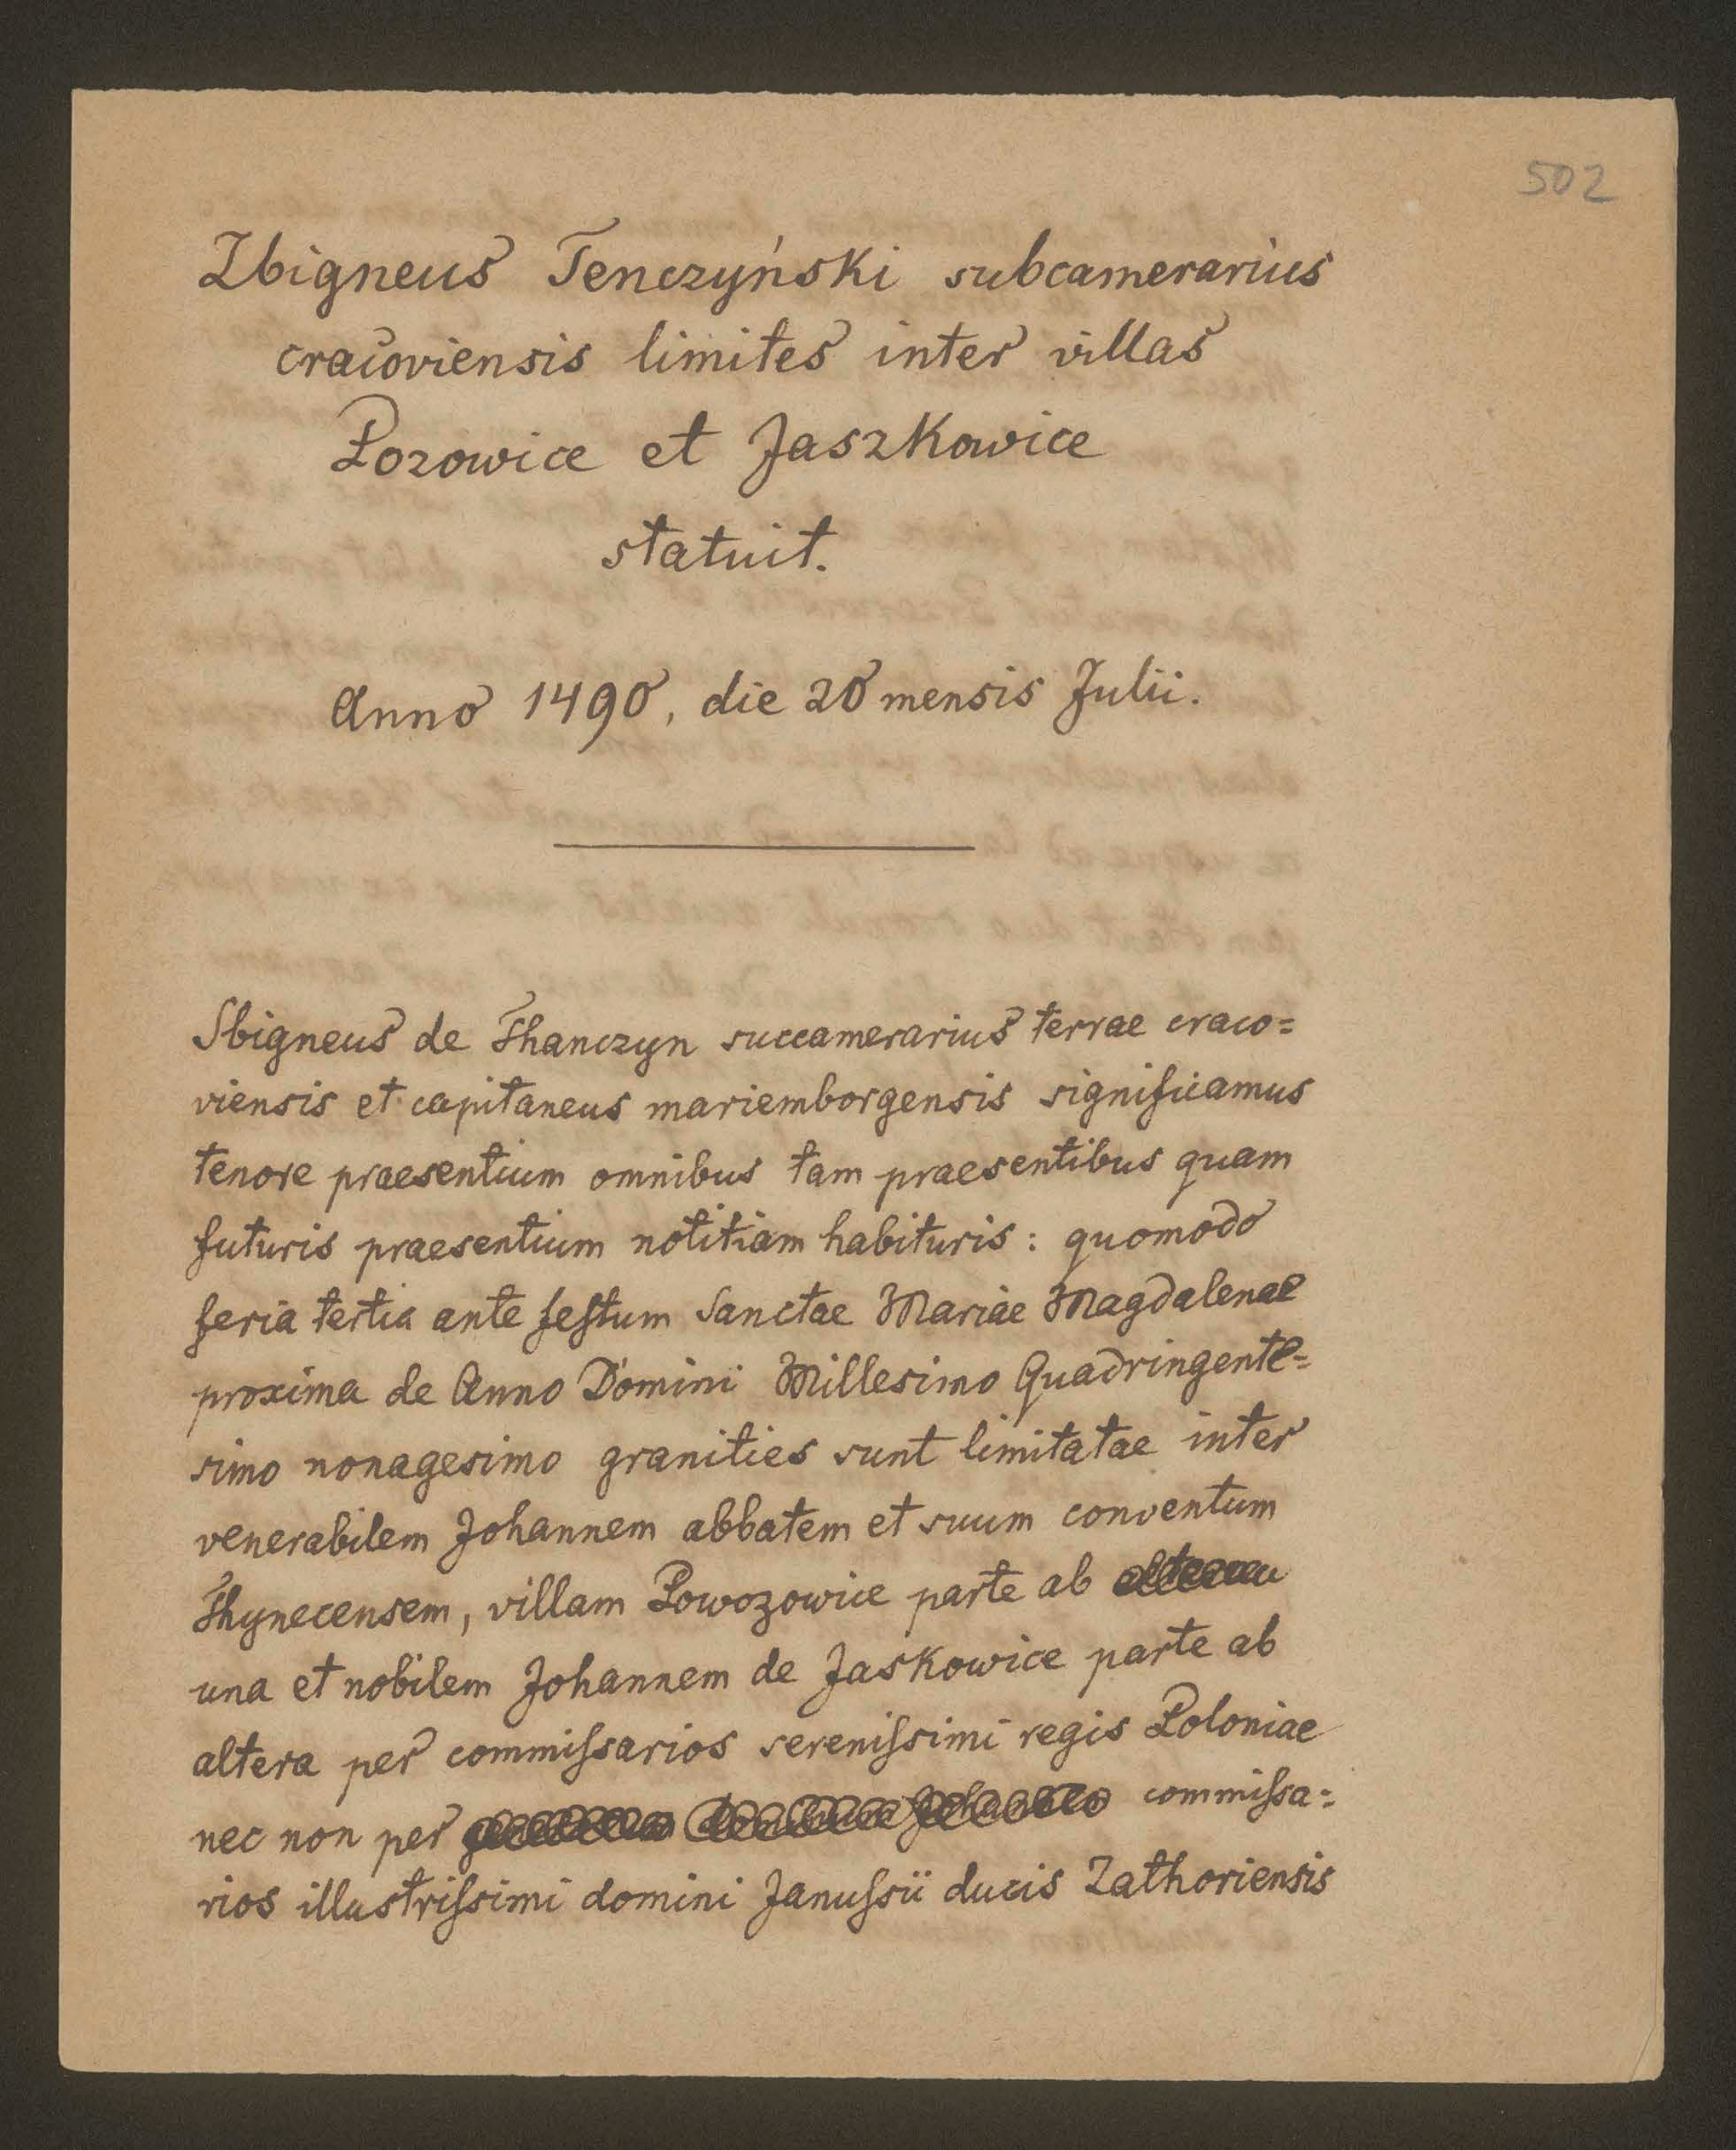 502
Zbigneus Tenczyński subcamerarius
cracoviensis limites inter villas
Pozowice et Jaszkowice
statuit.
Anno 1490, die 20 mensis Julii.
Sbigneus de Thanczyn succamerarius terrae craco=
viensis et capitaneus mariemborgensis significamus
tenore praesentium omnibus tam praesentibus quam
futuris praesentium notitiam habituris: quomodo
feria tertia ante feſtum Sanctae Mariae Magdalenae
proxima de Anno Domini Millesimo Quadringente=
simo nonagesimo granities sunt limitatae inter
venerabilem Johannem abbatem et suum conventum
Thynecensem, villam Powozowice parte ab
una et nobilem Johannem de Jaskowice parte ab
altera per commiſsarios sereniſsimi regis Poloniae
nec non per commiſsa=
rios illustriſsimi domini Januſsii ducis Zathoriensis